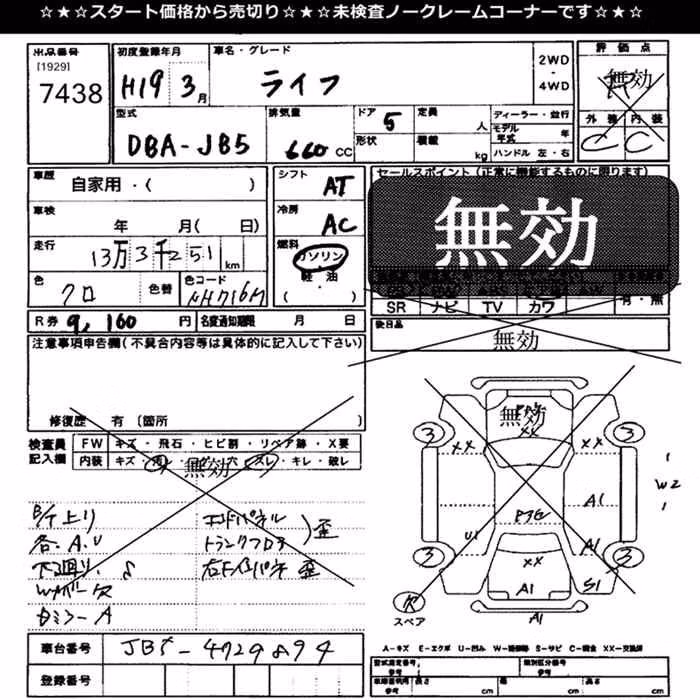 ☆★☆スタート価格から売切り☆★☆未検査ノークレームコーナーです☆★☆
出品番号
[1929]
7438
初度登録年月
H19 3月
車名・グレード
ライフ
2WD
・
4WD
評価点
無効
外装 内装
C C
型式
DBA-JB5
排気量
660 CC
ドア 5
形状
定員 人
積載 kg
ディーラー・並行
モデル年式 年
ハンドル 左・右
車歴
自家用・( )
車検
年 月( 日)
走行
13万3千251 km
色
クロ
色替
色コード
NH716M
シフト
AT
冷房
AC
燃料
ガソリン
軽・油
( )
セールスポイント(正常に機能するものに限ります)
無効
SR ナビ TV カワ
有・無
R券 9,160 円
名変通知期限 月 日
後日品
無効
注意事項申告欄(不具合内容等は具体的に記入して下さい)
修復歴 有 (箇所 )
検査員記入欄
FW キズ・飛石・ヒビ割・リペア跡・X要
内装 キズ・汚レ・ 穴・スレ・キレ・破レ
無効
各.A.U
エンドパネル
トランクフロア
歪
下廻り.S
歪
車台番号
JB5-4729894
登録番号
無効
3 3
XX XX
XX
W2
A1
U1
A1
3 3
XX
S1
A1
A1
スペア
A-キズ E-エクボ U-凹み W-補修跡 S-サビ C-腐食 XX-交換済
型式指定番号
参考
類別区分番号
参考
長さ cm
幅 cm
高さ cm